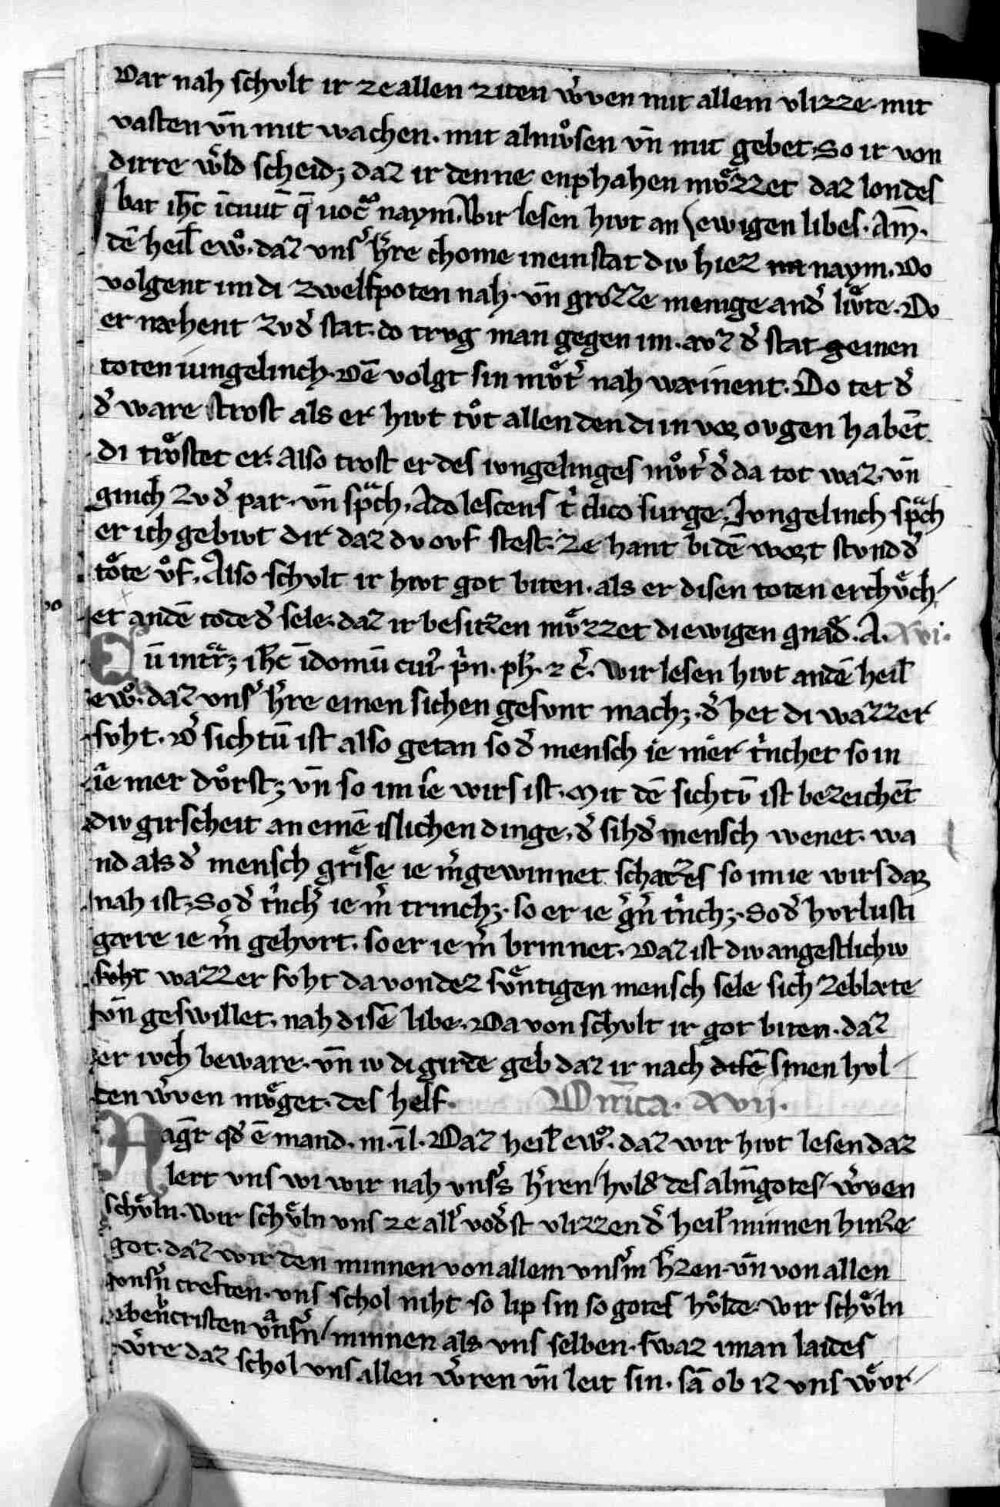 Dar nah schvlt ir ze allen ziten w̾ven mit allem vlizze. mit
vasten vn̄ mit wachen. mit almv̊sen vn̄ mit gebet. So ir von
dirre w̾ld scheidꝫ daz ir denne enphahen mv̊zzet daz lon des
bat ih̄c ī ciuit̄ q̄ uocᵃ naym. Wir lesen hivt an ewigen libes. Am̄.
dē heil̄ ewͦ. daz vnsʾ h̾re chome in ein stat div hiez naym. Do
volgent im di zwelfpoten nah. vn̄ grozze menige andʾ livͤte. Do
er næhent zv dʾ stat. do trvg man gegen im. avz dʾ stat geinen
toten iungelinch. Dē volgt sin mvͦtʾ nah wæinent. Do tet dʾ
dʾ ware trost als er hivt tvͦt allen den di in vor ovgen habēt
di trͦstet er. Also trost er des ivngelinges mvͦtʾ dʾ da tot waz. vn̄
ginch zv dʾ par. vn̄ spͣch. Adolescens tⁱ dico surge. Jvngelinch spͣch
er ich gebivt dir daz dv ovf stest. Ze hant bi dē wort stvnd dʾ
tͦte vͦf. Also schvlt ir hivt got biten. als er disen toten erchvͤch-
et an dē tode dʾ sele. daz ir besitzen mvͤzzet di ewigen gnad̾. A. xvi.
Cū intͣrꝫ ih̄c ī domū cuiʾ. pⁱn. ph̄. ⁊ cʾ. Wir lesen hivt an dē heil̄
ewͦ. daz vnsʾ h̾re einen sichen gesvnt machꝫ. dʾ het di wazzer
svht. Dʾ sichtū ist also getan so dʾ mensch ie mer tⁱnchet so in
ie mer dvͦrstꝫ vn̄ so im ie wirs ist. Mit dē sichtv̄ ist bezeichēt
div girscheit an einē islichen dinge, dʾ sih dʾ mensch wenet. wa
nd als dʾ mensch grͤse ie m̾ gewinnet schatzes so im ie wirs dar
nah ist. So dʾ tⁱnchʾ ie m̾ trinchꝫ. so er ie g̾n̾ tⁱnchꝫ. So dʾ hvrlusti
gære ie m̾ gehvrt. so er ie m̾ brinnet. Daz ist div angestlichiv
svht wazzer svht da von dez svͤntigen mensch sele sich zeblæte
vn̄ geswillet. nah disē libe. Da von schvlt ir got biten. daz
er ivch beware. vn̄ iv di girde geb daz ir nach disē sinen hvl-
den w̾ven mvͤget. des helf. Dnīca. xvii.
Magr̄ qd̾ ē mand. m. ī l. Daz heil̄ ewͦ. daz wir hivt lesen daz
lert uns wi wir nah vnsʾs h̾ren hvld des alm̄ gotes w̾ven
schvͤln. Wir schvͤln vns ze allʾ vodʾst vlizzen dʾ heil̄ minnen hinze
got. daz wir den minnen von allem vnsʾm h̾zen. vn̄ von allen
vnsʾn creften. vns schol niht so lip sin so gotes hvͦlde. Wir schvͤln
ebencristen vnsʾn minnen als vns selben. swaz iman laides
w̾re daz schol vns allen w̾ren vn̄ leit sin. sā ob iz vns wͤvr-